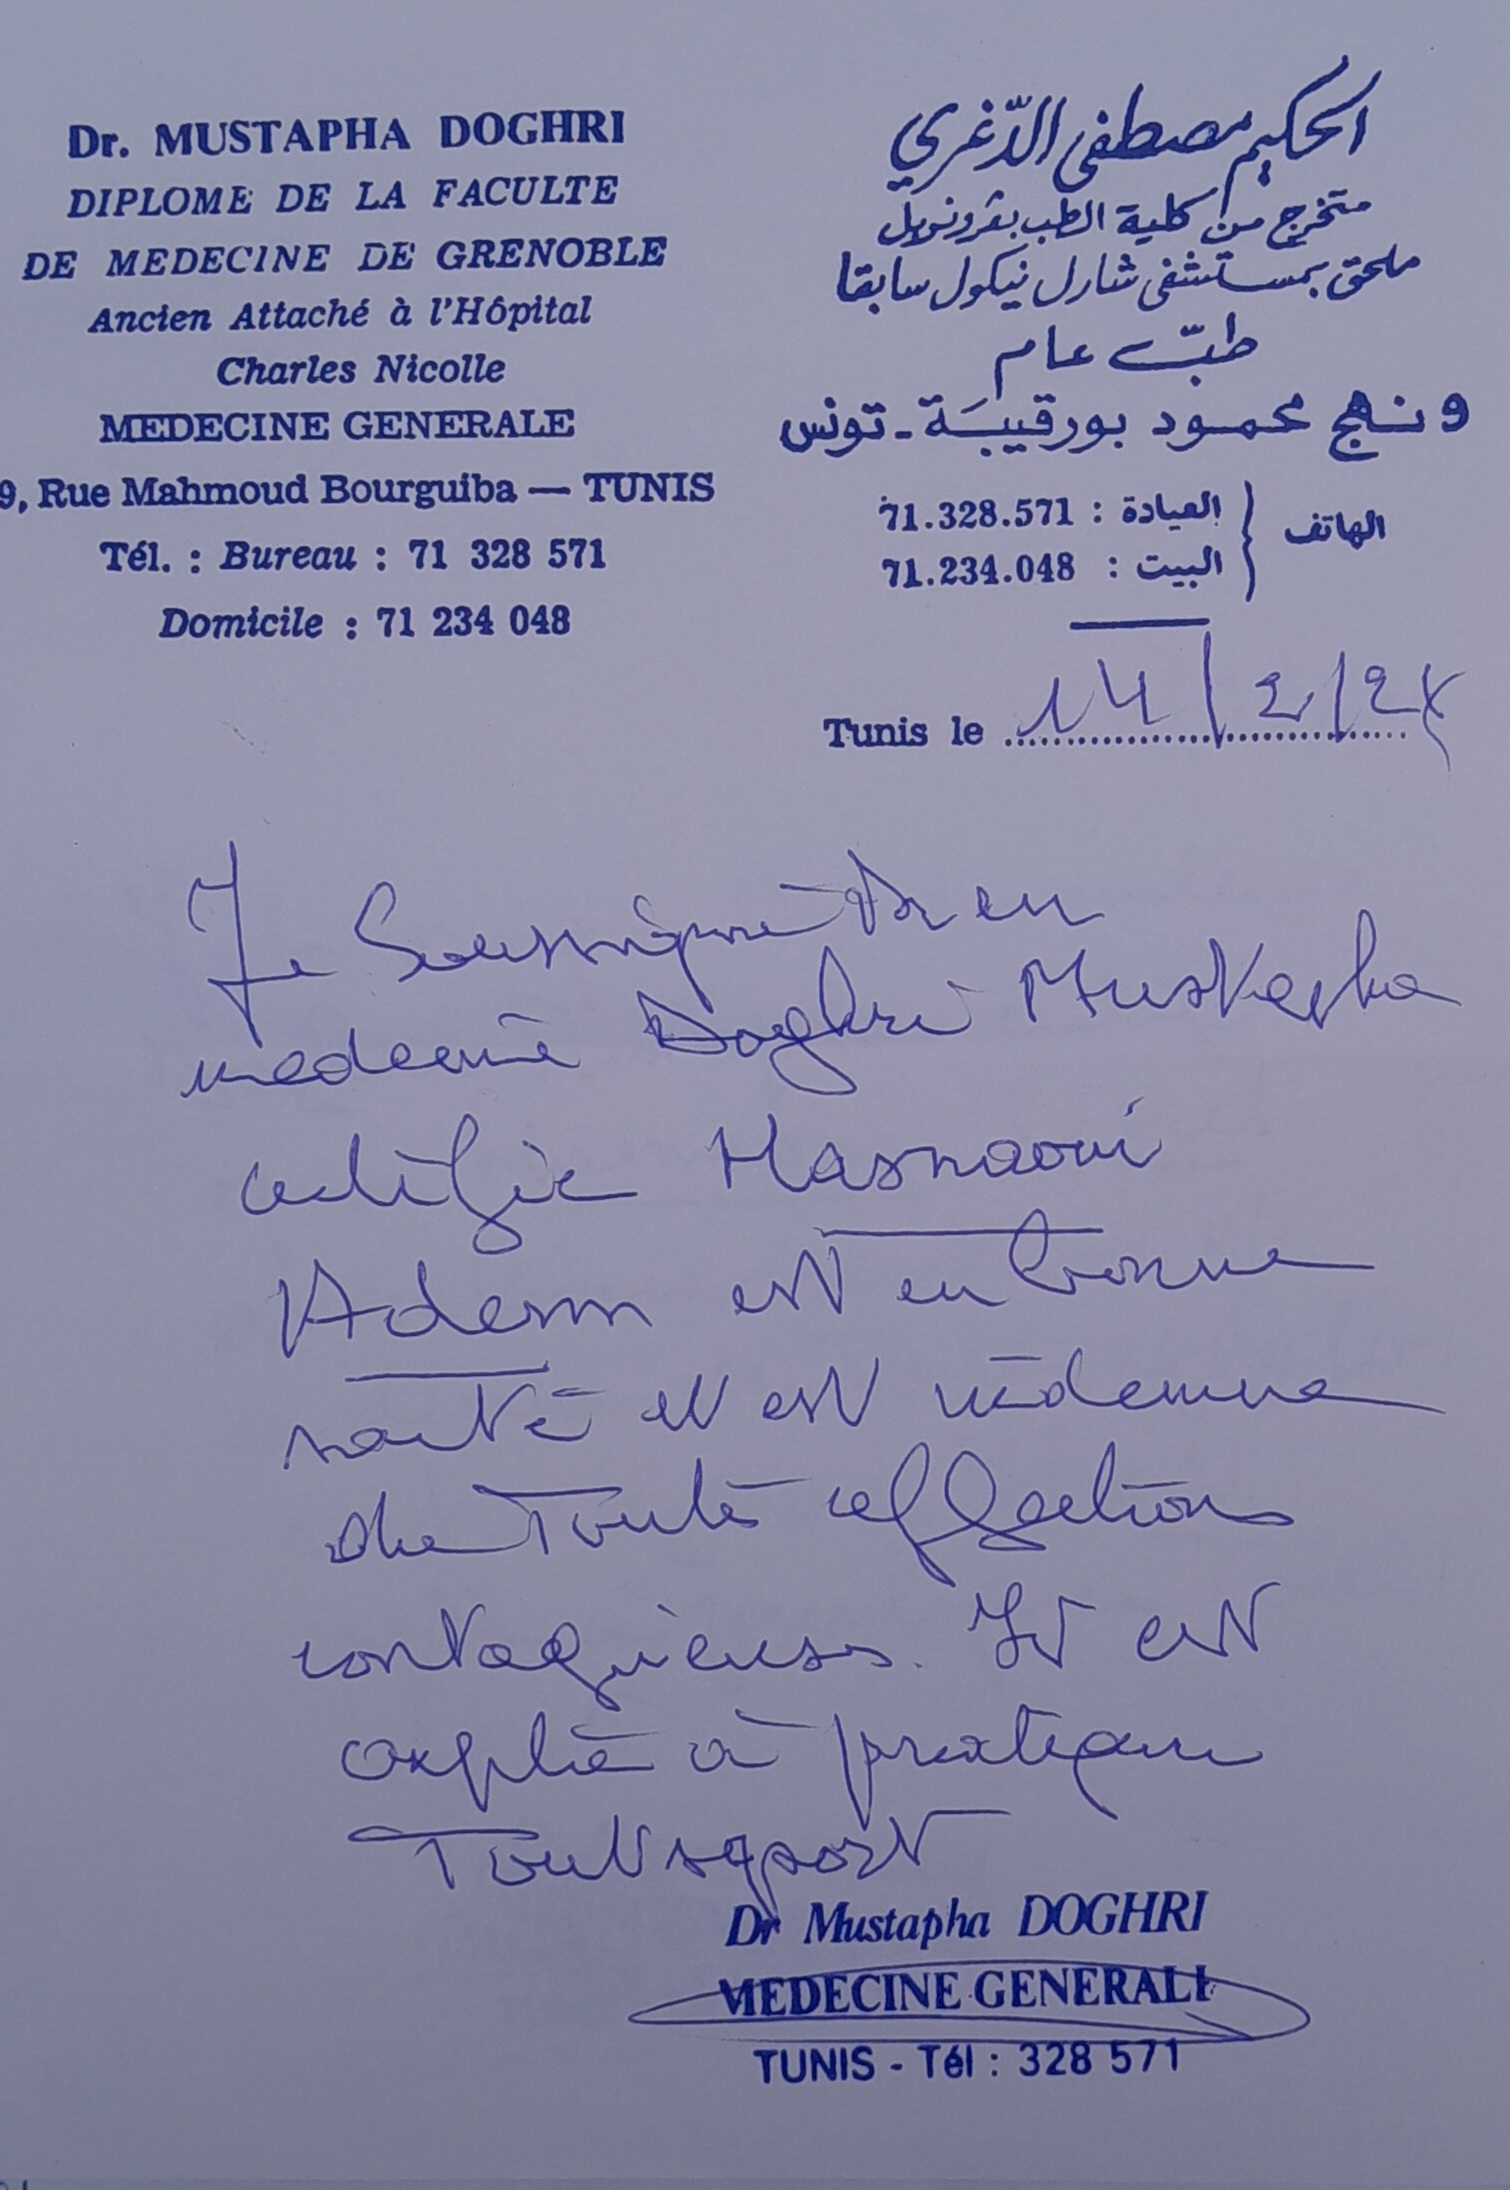 Dr. MUSTAPHA DOGHRI
DIPLOME DE LA FACULTE
DE MEDECINE DE GRENOBLE
Ancien Attaché à l'Hôpital
Charles Nicolle
MEDECINE GENERALE
9, Rue Mahmoud Bourguiba — TUNIS
Tél. : Bureau : 71 328 571
Domicile : 71 234 048
الحكيم مصطفى الدّغري
متخرج من كلية الطب بقرونوبل
ملحق بمستشفى شارل نيكول سابقا
طبّ عام
9 نهج محمود بورقيبَة - تونس
الهاتف { العيادة : 71.328.571
البيت : 71.234.048
Tunis le 14/2/2
Je soussigné Dr en
medecine Doghri Mustapha
certifie Hasnaoui
Adem est en bonne
santé et est indemne
de toute affection
contagieuse. Il est
apte à pratiquer
tout sport
Dr Mustapha DOGHRI
MEDECINE GENERALE
TUNIS - Tél : 328 571